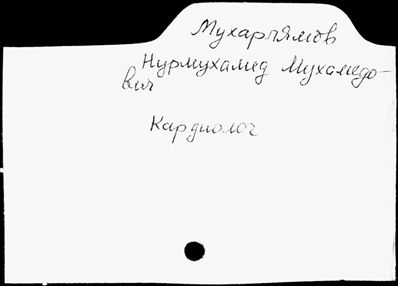 Мухарлямов
Нурмухамед Мухамедо-
вич
Кардиолог